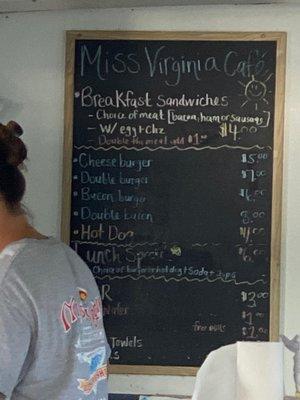 Miss Virginia Café
• Breakfast sandwiches
- Choice of meat [Bacon, ham or sausage]
- W/ egg + chz $4.00
Double the meat add $1.00
• Cheese burger $5.00
• Double burger $7.00
• Bacon burger $6.00
• Double bacon 8.00
• Hot Dog
Lunch Special
Choice of burger or hot dog + Soda +
R $3.00
water $1.00
free refills $1.
Towels